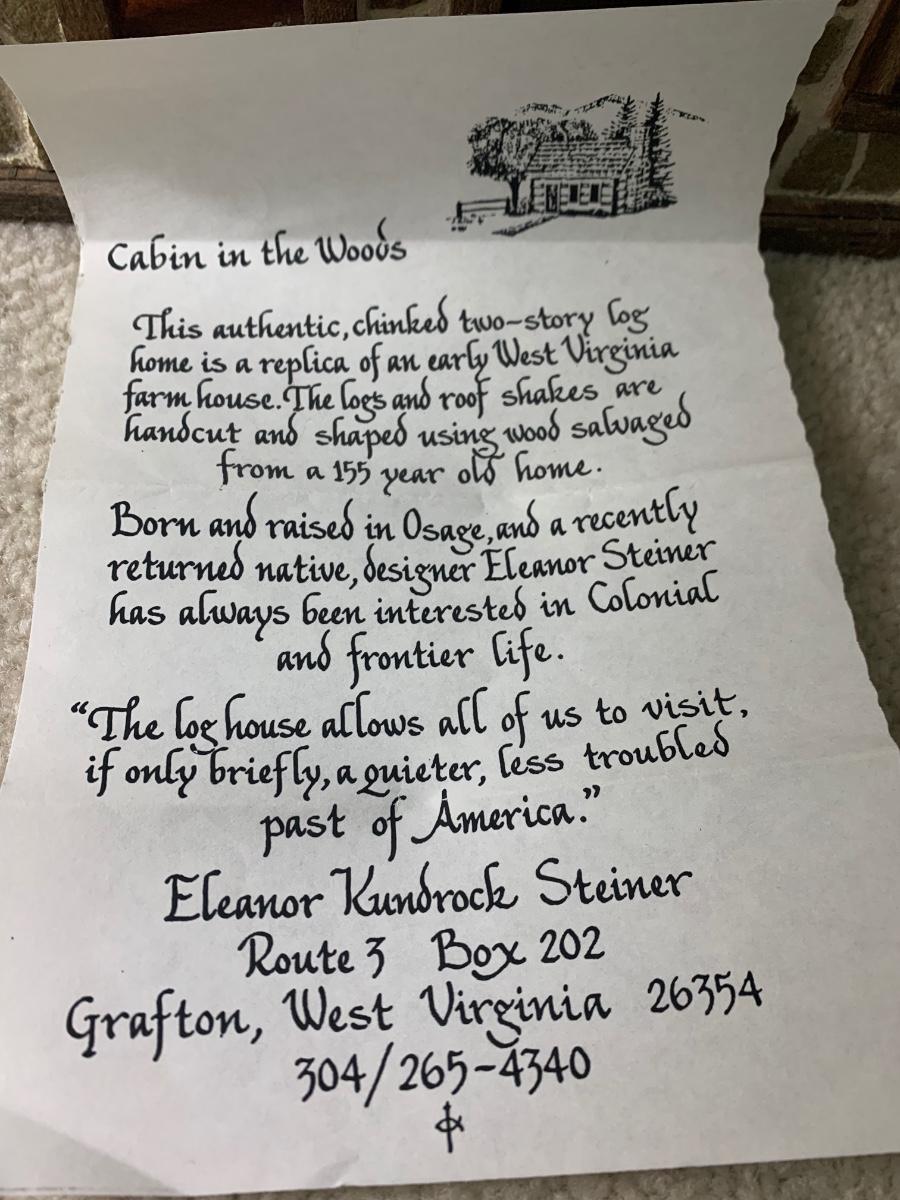 Cabin in the Woods
This authentic, chinked two-story log
home is a replica of an early West Virginia
farm house. The logs and roof shakes are
handcut and shaped using wood salvaged
from a 155 year old home.
Born and raised in Osage, and a recently
returned native, designer Eleanor Steiner
has always been interested in Colonial
and frontier life.
“The log house allows all of us to visit,
if only briefly, a quieter, less troubled
past of America.”
Eleanor Kundrock Steiner
Route 3 Box 202
Grafton, West Virginia 26354
304/265-4340